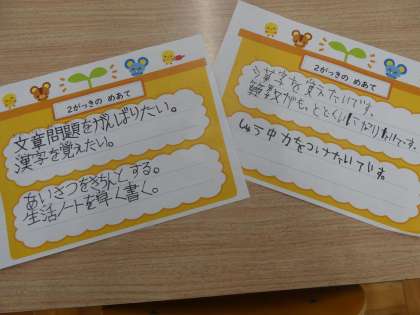 2がっきの めあて
文章問題をがんばりたい。
漢字を覚えたい。
あいさつをきちんとする。
生活ノートを早く書く。
2がっきの めあて
漢字を覚えたいです。
算数がも、ととくいになりたいです。
しゅう中力をつけたいです。